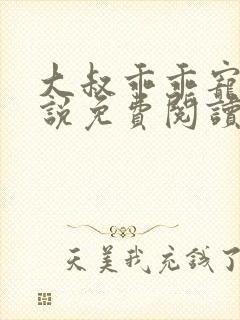 大叔乖乖寵
説免費閱讀
天美我充錢了